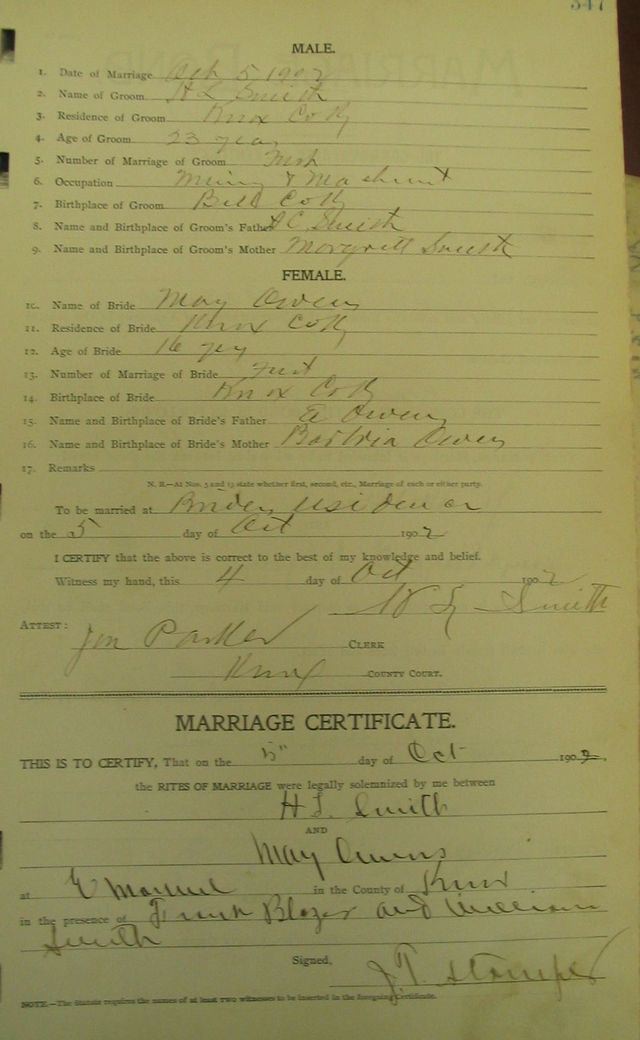 347
MALE.
1. Date of Marriage Oct 5 1902
2. Name of Groom H L Smith
3. Residence of Groom Knox Co Ky
4. Age of Groom 23 years
5. Number of Marriage of Groom First
6. Occupation Mining &
7. Birthplace of Groom Bell Co Ky
8. Name and Birthplace of Groom's Father C Smith
9. Name and Birthplace of Groom's Mother Smith
FEMALE.
10. Name of Bride May Owens
11. Residence of Bride Knox Co Ky
12. Age of Bride 16 yrs
13. Number of Marriage of Bride First
14. Birthplace of Bride Knox Co Ky
15. Name and Birthplace of Bride's Father Owens
16. Name and Birthplace of Bride's Mother Owens
17. Remarks
N. B.—At Nos. 5 and 13 state whether first, second, etc., Marriage of each or either party.
To be married at Brides residence
on the 5 day of Oct 1902
I CERTIFY that the above is correct to the best of my knowledge and belief.
Witness my hand, this 4 day of Oct 1902
H L Smith
ATTEST: Parker CLERK
Knox COUNTY COURT.
MARRIAGE CERTIFICATE.
THIS IS TO CERTIFY, That on the 5" day of Oct 1902,
the RITES OF MARRIAGE were legally solemnized by me between
H L Smith
AND
May Owens
at Emanuel in the County of Knox
in the presence of Frank Blazer and William
Smith
Signed, J. T. Stamper
NOTE.—The Statute requires the names of at least TWO witnesses to be inserted in the foregoing Certificate.